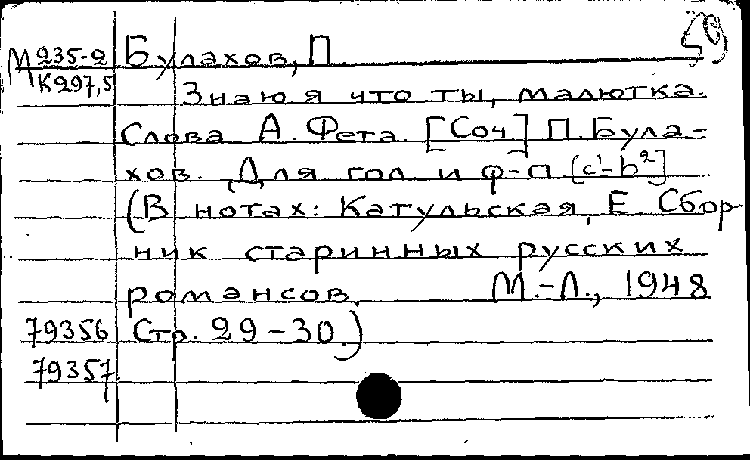 М 235-2 Булахов, П.
К 297,5 Знаю я что ты, малютка.
Слова А. Фета. [Соч] П. Була-
хов. Для гол. и ф-п. [c'-b²]
(В нотах: Катульская, Е. Сбор-
ник старинных русских
романсов. М.-Л., 1948
79356 Стр. 29-30.)
79357